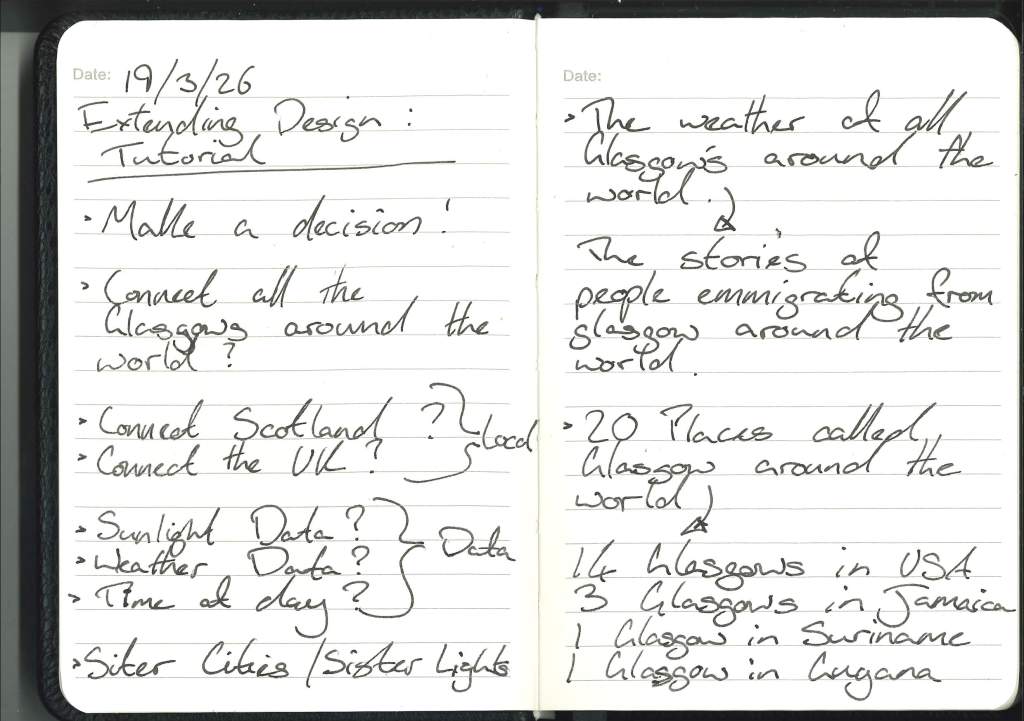 Date: 19/3/26
Extending Design :
Tutorial
Make a decision!
Connect all the
Glasgows around the
world?
Connect Scotland ?
Connect the UK?
Local
Sunlight Data?
Weather Data?
Time of day?
Data
Siter Cities/Sister Lights
Date:
The weather of all
Glasgow's around the
world.
The stories of
people emmigrating from
glasgow around the
world.
20 Places called
Glasgow around the
world
14 Glasgows in USA
3 Glasgows in Jamaica
1 Glasgow in Suriname
1 Glasgow in Guyana